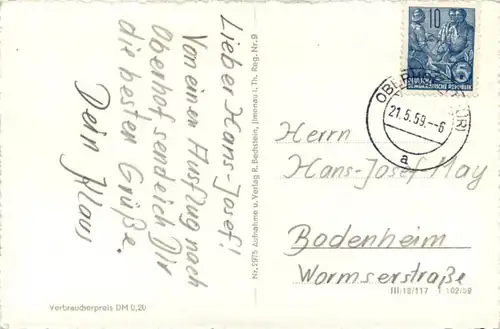 Lieber Hans-Josef!
Von einen Ausflug nach
Oberhof sende ich Dir
die besten Grüße.
Dein Klaus
Verbraucherpreis DM 0,20
Nr. 2975 Aufnahme u. Verlag R. Bechstein, Jlmenau i. Th. Reg. Nr. 9
10
DEUTSCHE DEMOKRATISCHE REPUBLIK
21.5.59.-6
a
Herrn
Hans-Josef May
Bodenheim
Wormserstraße
III/18/117